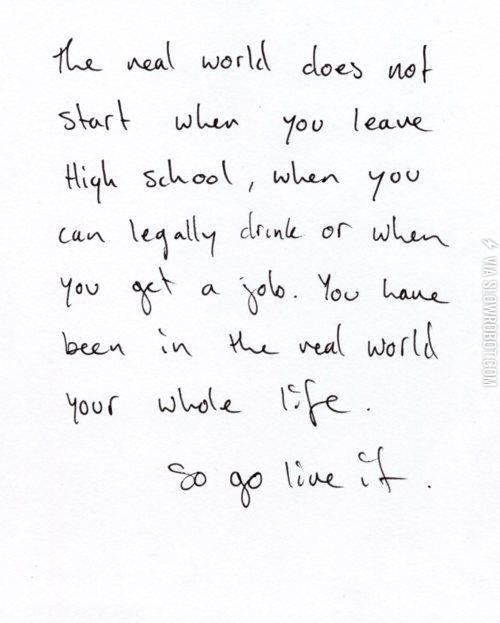 the real world does not
start when you leave
High school, when you
can legally drink or when
you get a job. You have
been in the real world
your whole life.
So go live it.
VIA SLOWROBOT.COM